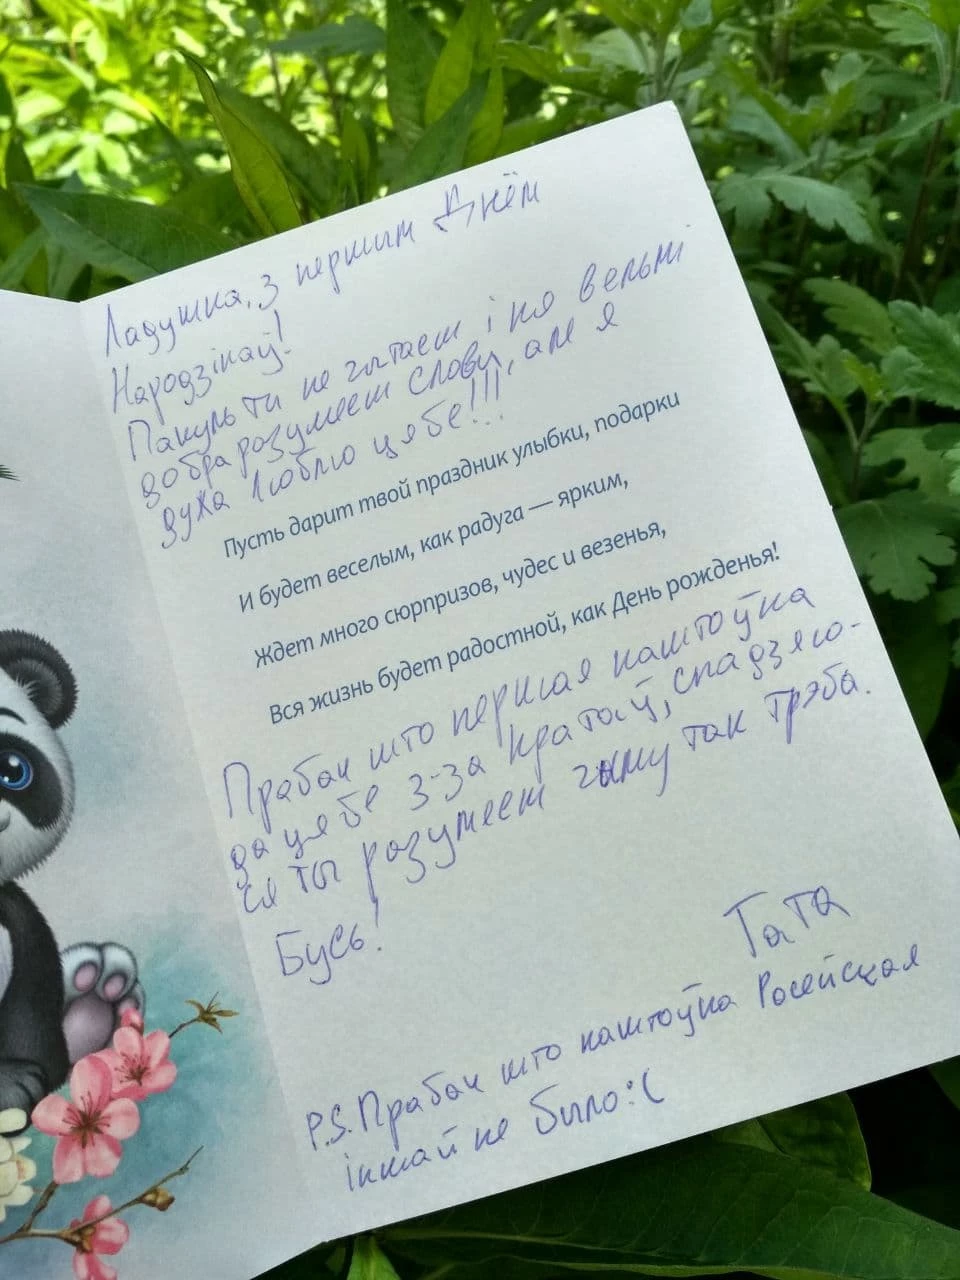 Ладушка, з першим Днём
Народзінаў!
Пакуль ти не чытаеш і не вельмі
добра разумееш словы, але я
дужа люблю цябе!!!
Пусть дарит твой праздник улыбки, подарки
И будет веселым, как радуга — ярким,
Ждет много сюрпризов, чудес и везенья,
Вся жизнь будет радостной, как День рожденья!
Прабач што першая паштоўка
да цябе з-за кратаў, спадзяю-
ся ты разумееш чаму так трэба.
Бусь!
Тата
P.S. Прабач што паштоўка Росейская
іншай не было :(